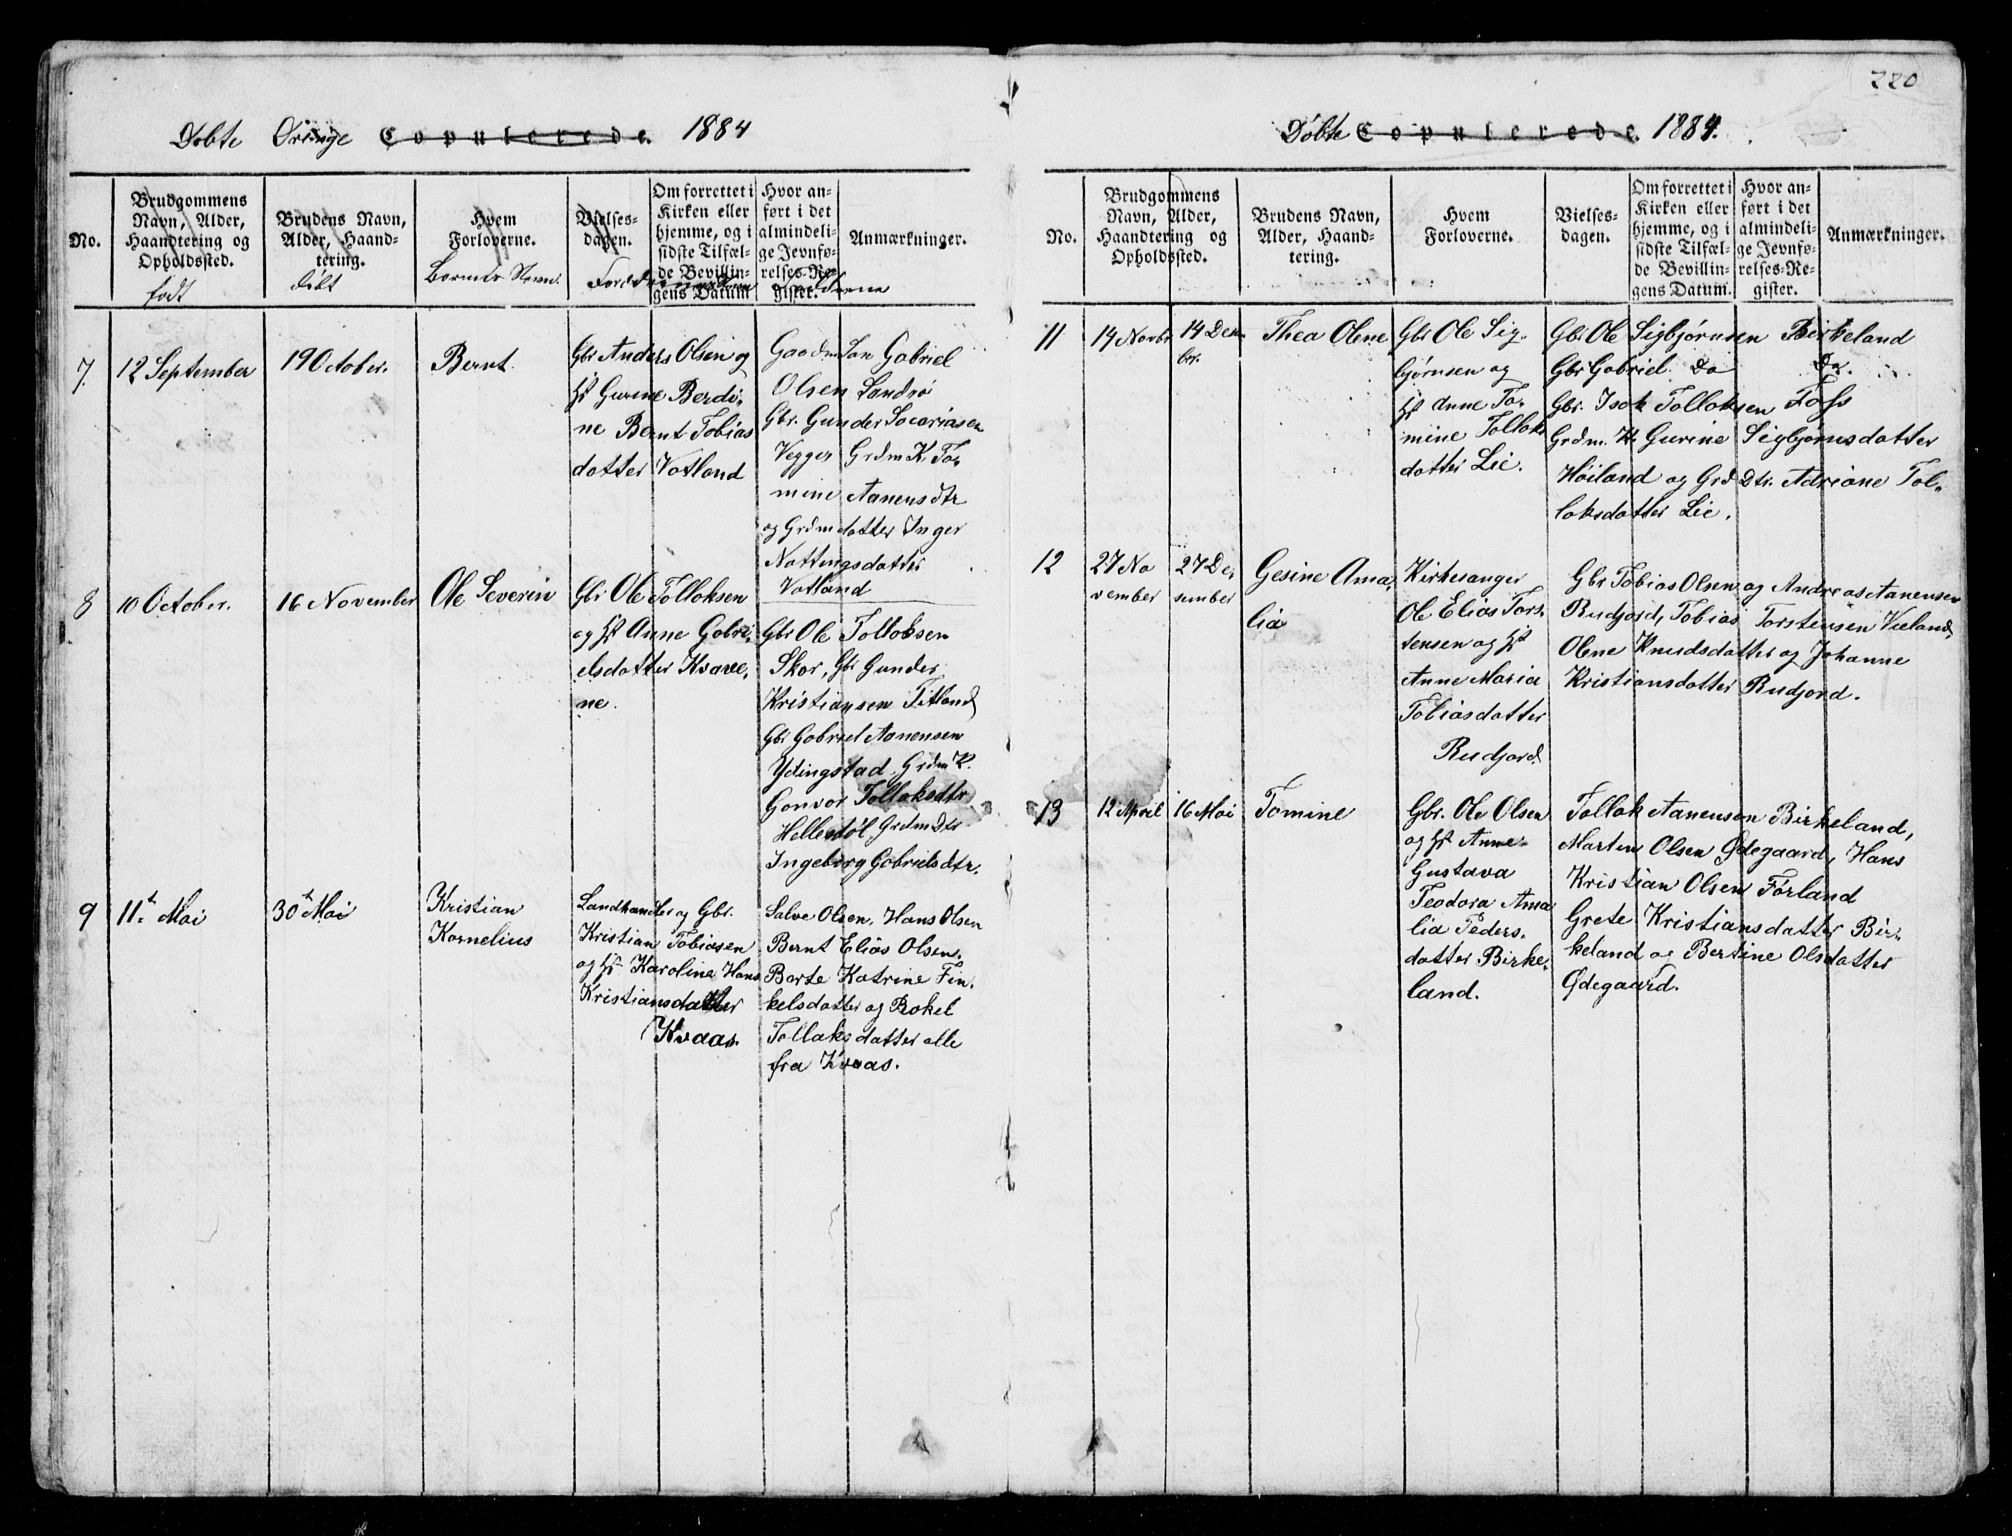 220
Døbte Drenge Copulerede. 1884
No.
Brudgommens
Navn, Alder,
Haandtering og
Opholdssted.
født
Brudens Navn,
Alder, Haand-
tering.
døbt
Hvem
Forloverne.
Barnets Navn.
Vielses-
dagen.
Om forrettet i
Kirken eller
hjemme, og i
sidste Tilfæl-
de Bevillin-
gens Datum
Hvor an-
ført i det
almindeli-
ge Jevnfø-
relses-Re-
gister.
Anmærkninger.
7
12 September
19 October.
Bernt.
Gbr Anders Olsen og
H Gurine Berdi-
ne Bernt Tobias
datter Vatland
Gaardm Søn Gabriel
Olsen Sandvø
Gbr. Gunder Socariasen
Vegger Grdm K. To-
mine Aanensdtr
og Grdmdatter Inger
Nottingsdatter
Vatland
8
10 October.
16 November
Ole Severin
Gbr Ole Tolloksen
og H Anne Gabri-
elsdatter Kvave-
ne.
Gbr Ole Tolloksen
Skar, Gbr Gunder
Kristiansen Titland
Gbr Gabriel Aanensen
Ydingstad. Grdm K.
Gonvor Tollaksdtr
Hellestøl Grdm Dtr
Ingeborg Gabrielsdtr.
9
11t Mai
30t Mai
Kristian
Kornelius
Landhandler og Gbr.
Kristian Tobiasen
og H Karoline Hans
Kristiansdatter
Kvaas.
Salve Olsen, Hans Olsen
Bernt Elias Olsen.
Barte Katrine Fin-
kelsdatter og Rakel
Tollaks datter alle
fra Kvaas.
Døbte Copulerede. 1884.
No.
Brudgommens
Navn, Alder,
Haandtering og
Opholdssted.
Brudens Navn,
Alder, Haand-
tering.
Hvem
Forloverne.
Vielses-
dagen.
Om forrettet i
Kirken eller
hjemme, og i
sidste Tilfæl-
de Bevillin-
gens Datum.
Hvor an-
ført i det
almindeli-
ge Jevnfø-
relses-Re-
gister.
Anmærkninger.
11
14 Novbr
14 Dec
br.
Thea Oline
Gbr Ole Sig-
bjørnsen og
H Anne To-
mine Tollaks
datter Lie.
Gbr Ole Sigbjørnsen Birkeland
Gbr Gabriel Do Do.
Gbr. Isak Tolloksen Foss
Grdm. K. Gurine Sigbjørnsdatter
Høiland og Grd Dtr. Adriane Tol-
laksdatter Lie.
12
27 No
vember
27 De-
sember
Gesine Ama-
lia
Kirkesanger
Ole Elias Tors-
tensen og H
Anne Maria
Tobiasdatter
Rudjord
Gbr Tobias Olsen og Andreas Aanensen
Rudjord, Tobias Torstensen Vieland
Oline Knudsdatter og Johanne
Kristiansdatter Rudjord.
13
12 April
16 Mai
Tomine
Gbr. Ole Olsen
og H Anne
Gustava
Teodora Ama
lia Peders-
datter Birke-
land.
Tollak Aanensen Birkeland,
Martin Olsen Ødegaard, Hans
Kristian Olsen Førland
Grete Kristiansdatter Bir-
keland og Bertine Olsdatter
Ødegaard.